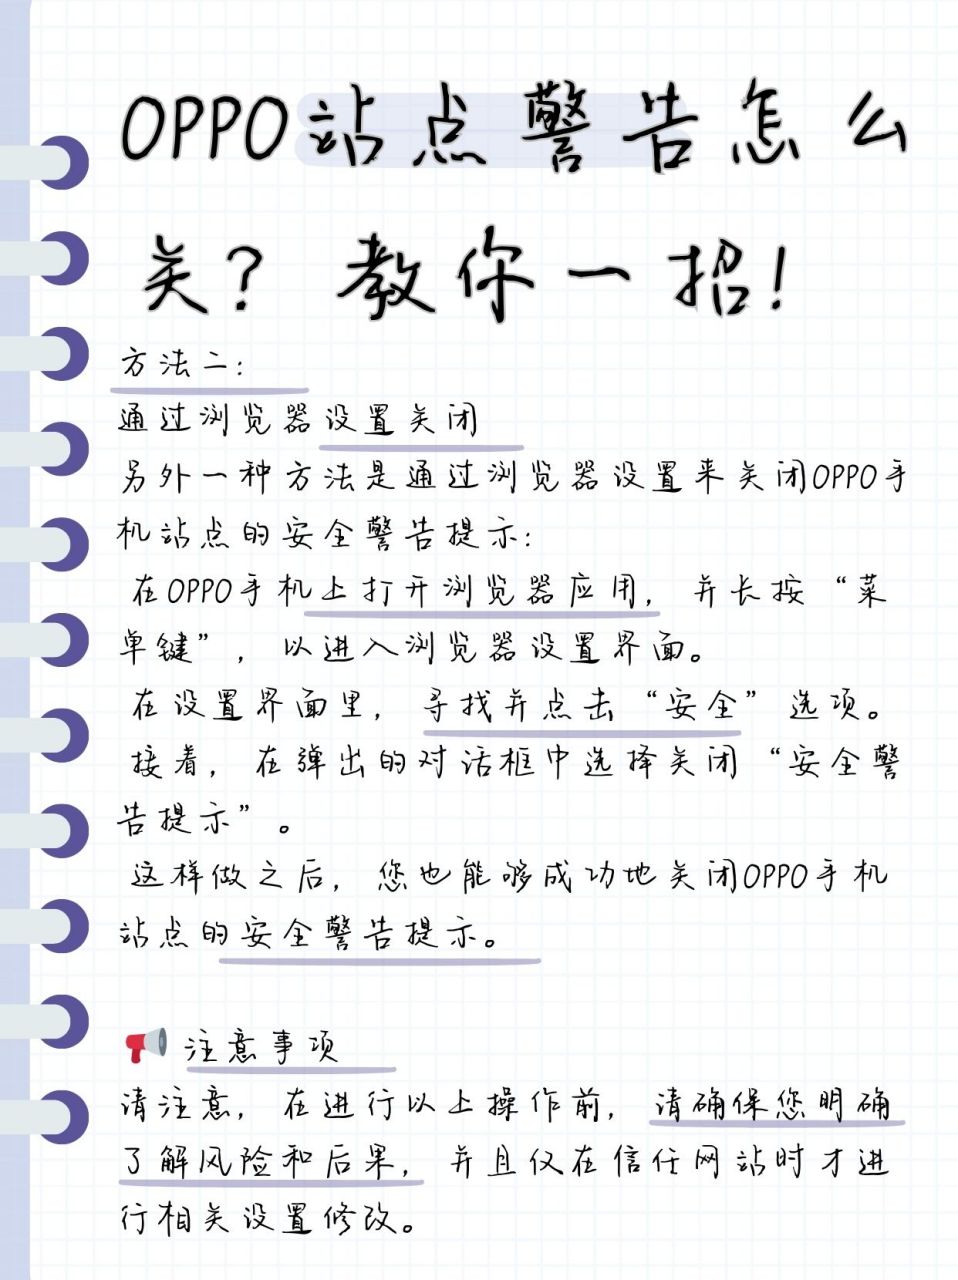 OPPO站点警告怎么
关？教你一招！
方法二：
通过浏览器设置关闭
另外一种方法是通过浏览器设置来关闭OPPO手
机站点的安全警告提示：
在OPPO手机上打开浏览器应用，并长按“菜
单键”，以进入浏览器设置界面。
在设置界面里，寻找并点击“安全”选项。
接着，在弹出的对话框中选择关闭“安全警
告提示”。
这样做之后，您也能够成功地关闭OPPO手机
站点的安全警告提示。
注意事项
请注意，在进行以上操作前，请确保您明确
了解风险和后果，并且仅在信任网站时才进
行相关设置修改。